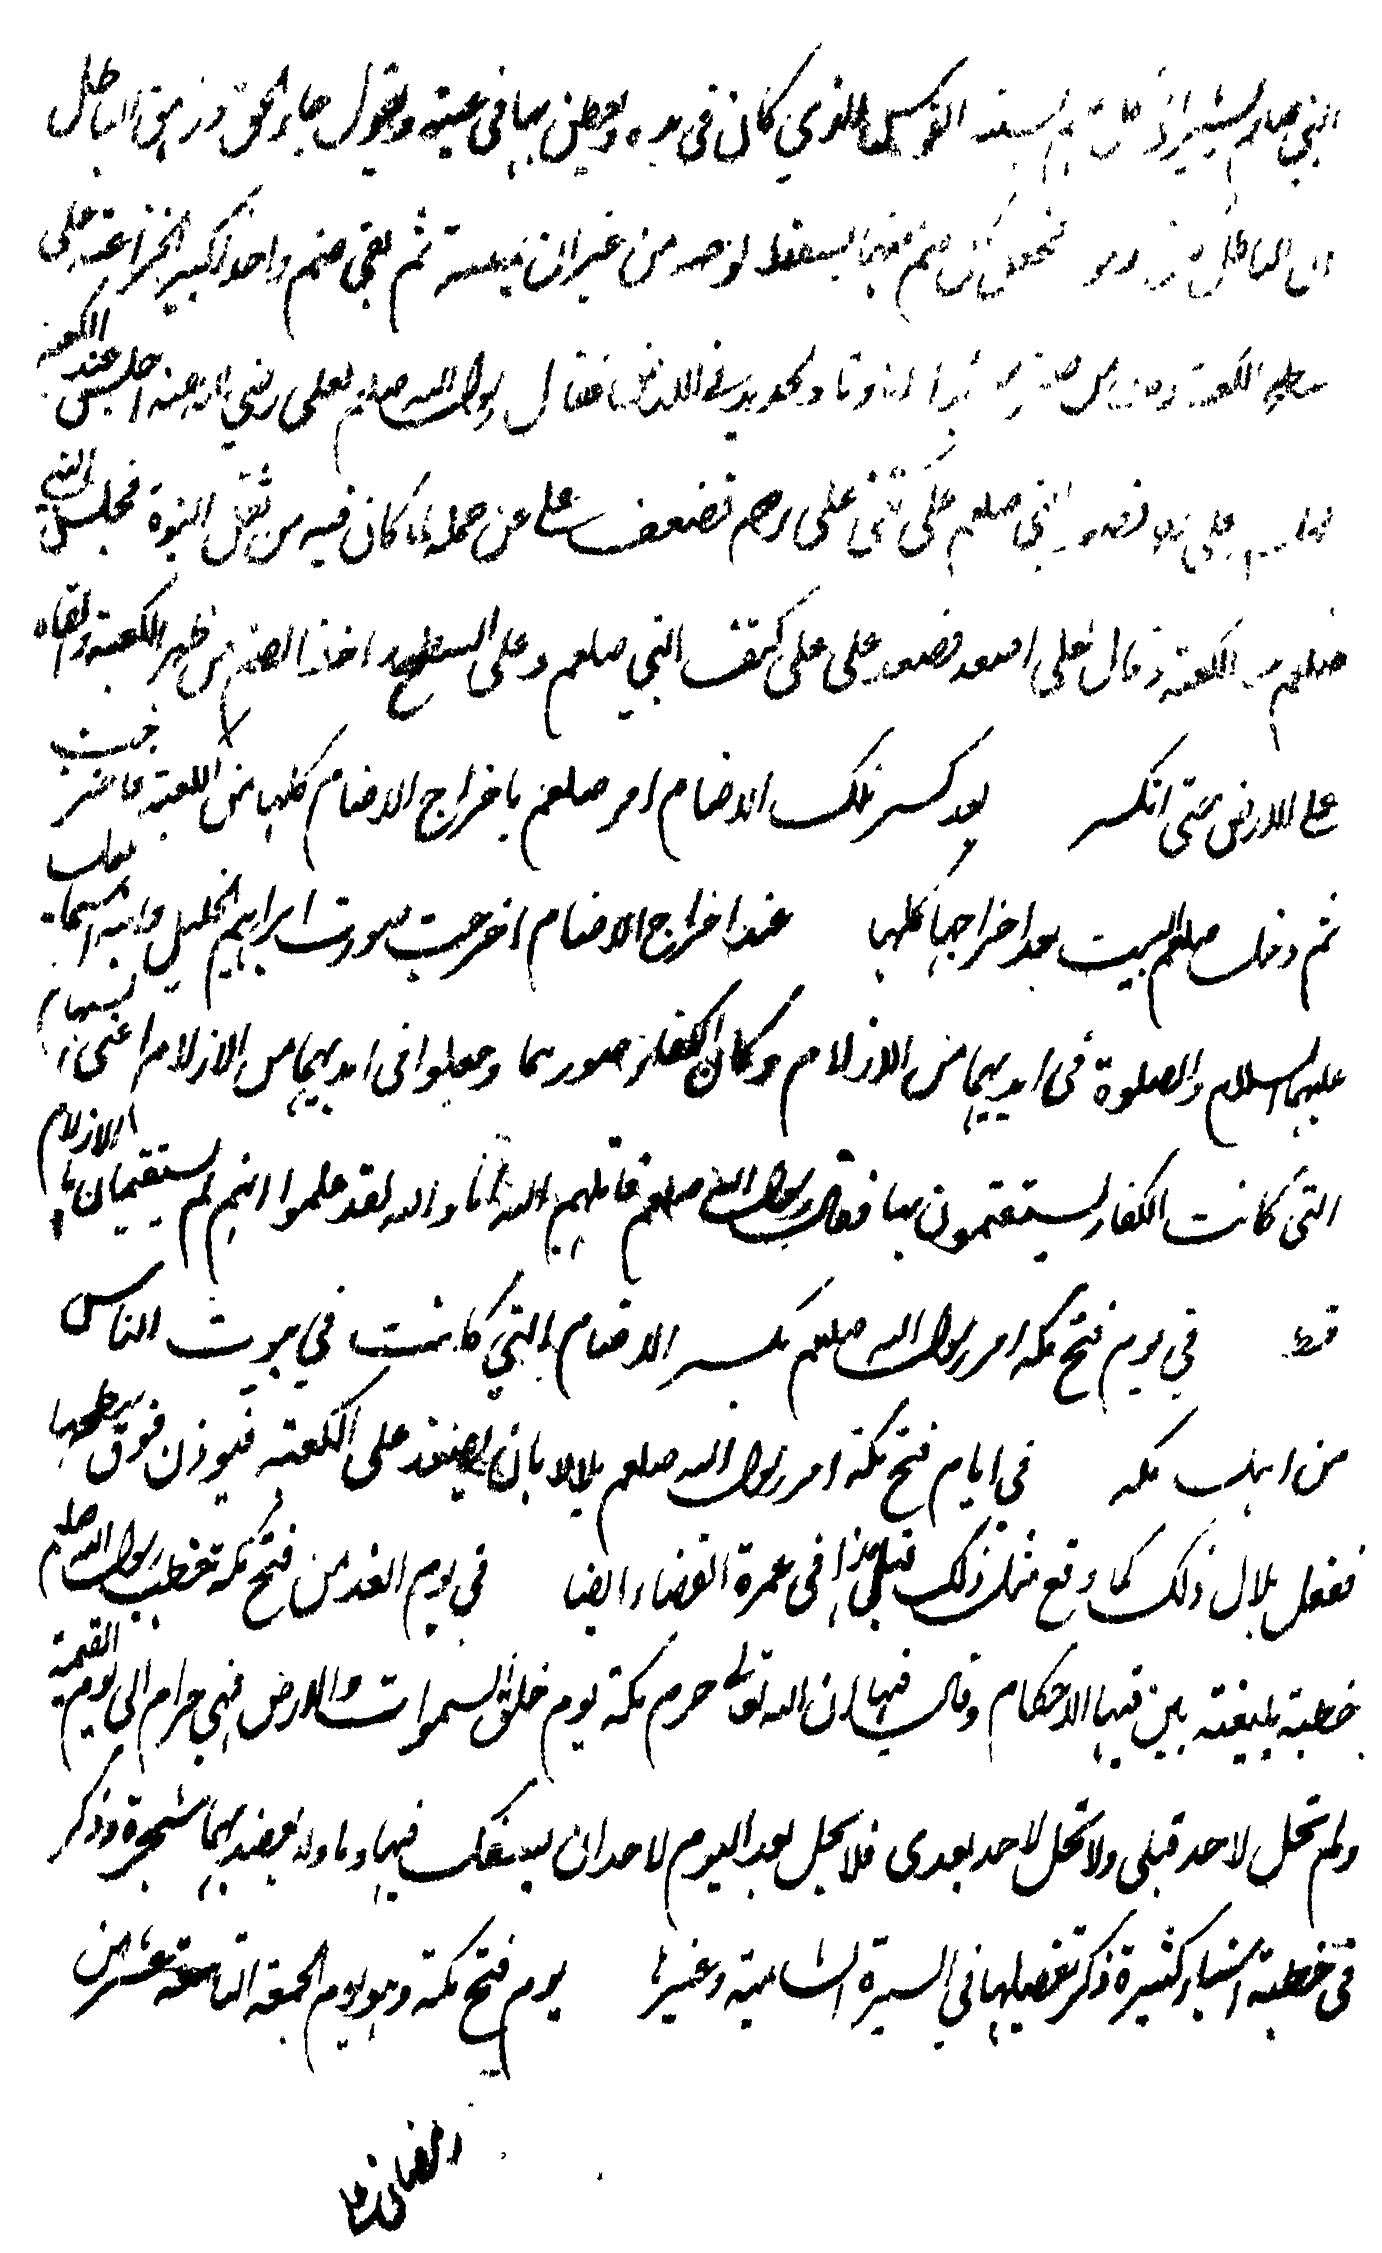 النبي صلعم يشير الى كل صنم بسية القوس الذي كان في يده ويطعن بها في عينه ويقول جاء الحق وزهق الباطل
ان الباطل كان زهوقا فجعل كل صنم منها يسقط لوجهه من غير ان يمسه ثم بقي صنم واحد كبير لخزاعة على
سطح الكعبة وكان من اوتاد الحديد في الارض فقال رسول الله صلعم لعلي رضي الله عنه اجلس عند الكعبة
فجلس علي فصعد النبي صلعم على كتفي علي رضه فضعف علي عن حمله لما كان فيه من ثقل النبوة فجلس النبي
صلعم عند الكعبة وقال لعلي اصعد فصعد علي على كتف النبي صلعم وعلى السطح اخذ الصنم من ظهر الكعبة والقاه
على الارض حتى انكسر بعد كسر تلك الاصنام امر صلعم باخراج الاصنام كلها من الكعبة فاخرجت
ثم دخل صلعم البيت بعد اخراجها كلها عند اخراج الاصنام اخرجت صورت ابراهيم الخليل وابنه اسمعيل
عليهما السلام والصلوة في ايديهما من الازلام وكان الكفار صورهما وجعلوا في ايديهما من الازلام اعني السهام
التي كانت الكفار يستقسمون بها فقال رسول الله صلعم قاتلهم الله اما والله لقد علموا انهم لم يستقسمان بالازلام
قط في يوم فتح مكه امر رسول الله صلعم بكسر الاصنام التي كانت في بيوت الناس
من اهل مكه في ايام فتح مكة امر رسول الله صلعم بلالا بان يصعد على الكعبة فيوذن فوق سطحها
ففعل بلال ذلك كما وقع مثل ذلك قبل هذا في عمرة القضاء ايضا في يوم الغد من فتح مكة خطب رسول الله صلعم
خطبة بليغة بين فيها الاحكام وقال فيها ان الله تعالى حرم مكة يوم خلق السموات والارض فهي حرام الى يوم القيمة
ولم تحل لاحد قبلي ولا تحل لاحد بعدي فلا يحل بعد اليوم لاحد ان يسفك فيها دما ولا يعضد بها شجرة وذكر
في خطبة اشياء كثيرة ذكر تفصيلها في السيرة الشامية وغيرها يوم فتح مكة وهو يوم الجمعة التاسعة عشر من